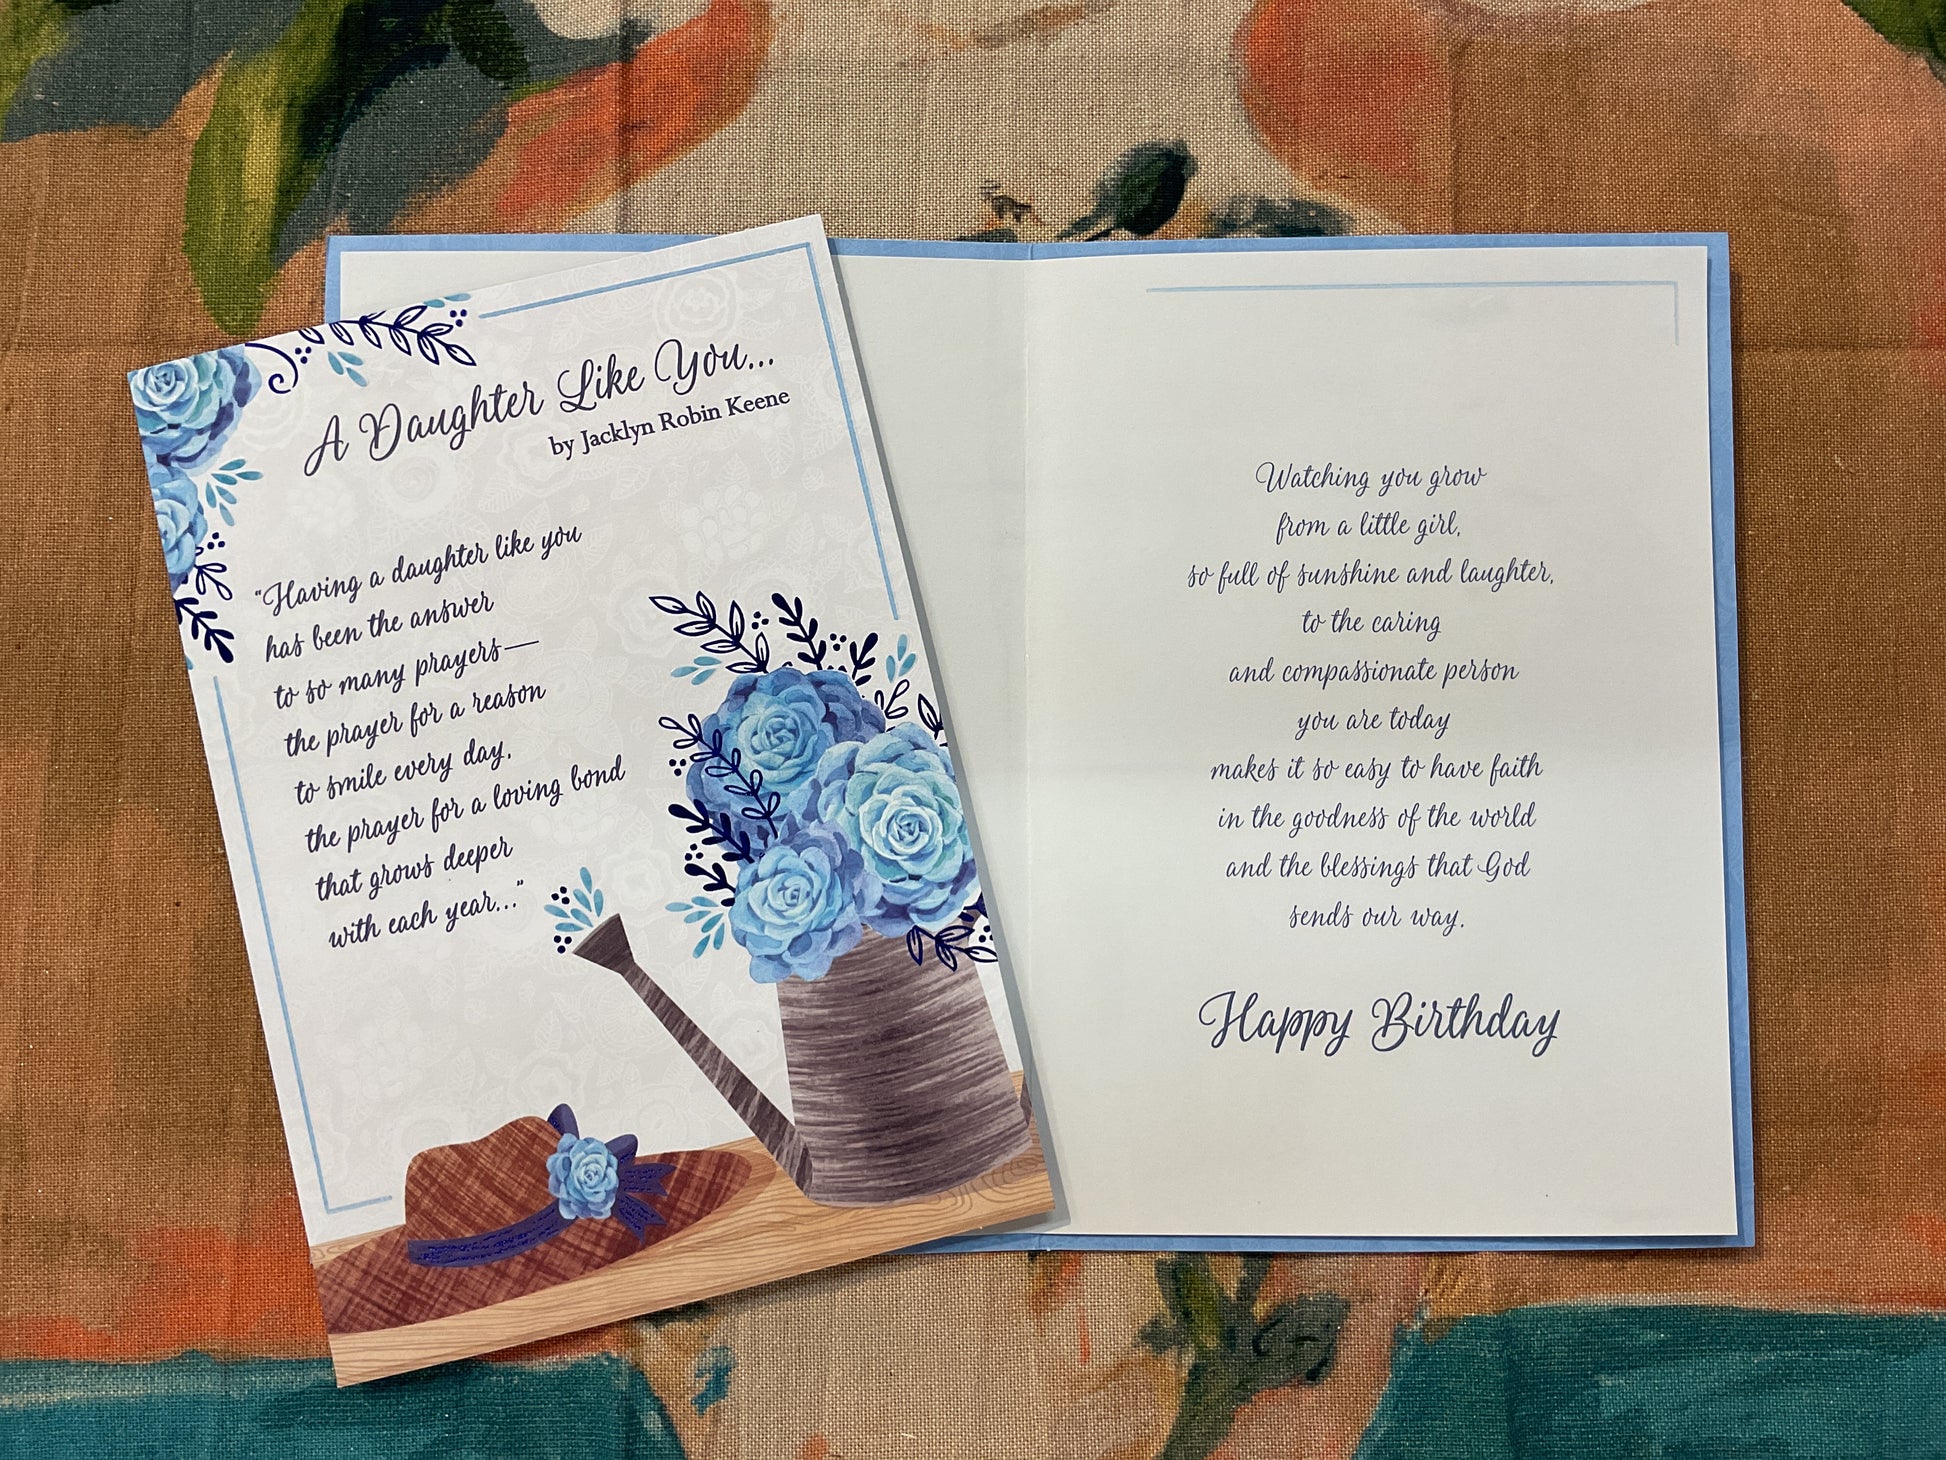 A Daughter Like You...
by Jacklyn Robin Keene
“Having a daughter like you
has been the answer
to so many prayers—
the prayer for a reason
to smile every day,
the prayer for a loving bond
that grows deeper
with each year...”
Watching you grow
from a little girl,
so full of sunshine and laughter,
to the caring
and compassionate person
you are today
makes it so easy to have faith
in the goodness of the world
and the blessings that God
sends our way.
Happy Birthday